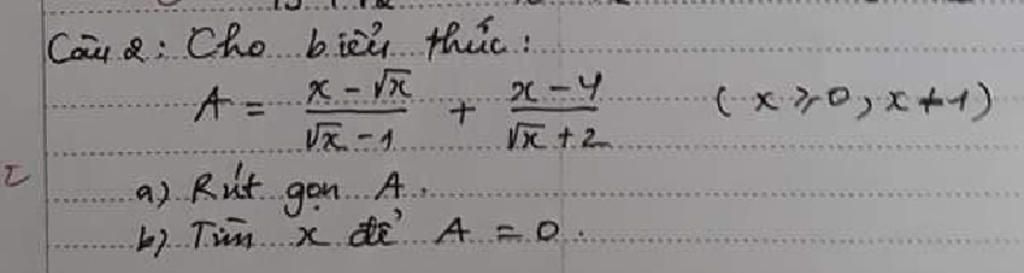 Câu 2: Cho biểu thức:
A = \frac{x - \sqrt{x}}{\sqrt{x} - 1} + \frac{x - 4}{\sqrt{x} + 2} (x ≥ 0, x ≠ 1)
a) Rút gọn A.
b) Tìm x để A = 0.